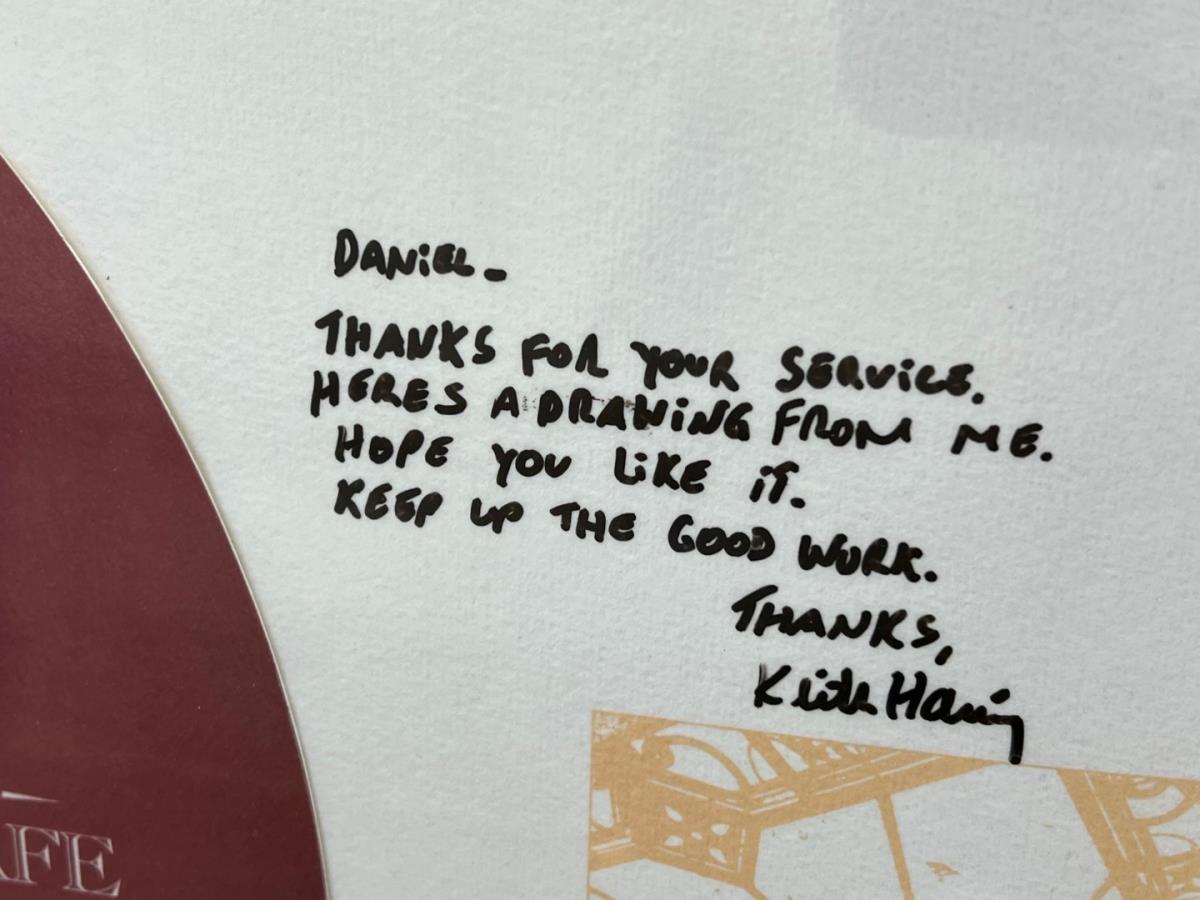 DANiEL-
THANKS FOR YOUR SERViCE.
HERES A DRAWiNG FROM ME.
HOPE YOU LiKE iT.
KEEP UP THE GOOD WORK.
THANKS,
Keith Haring
AFE